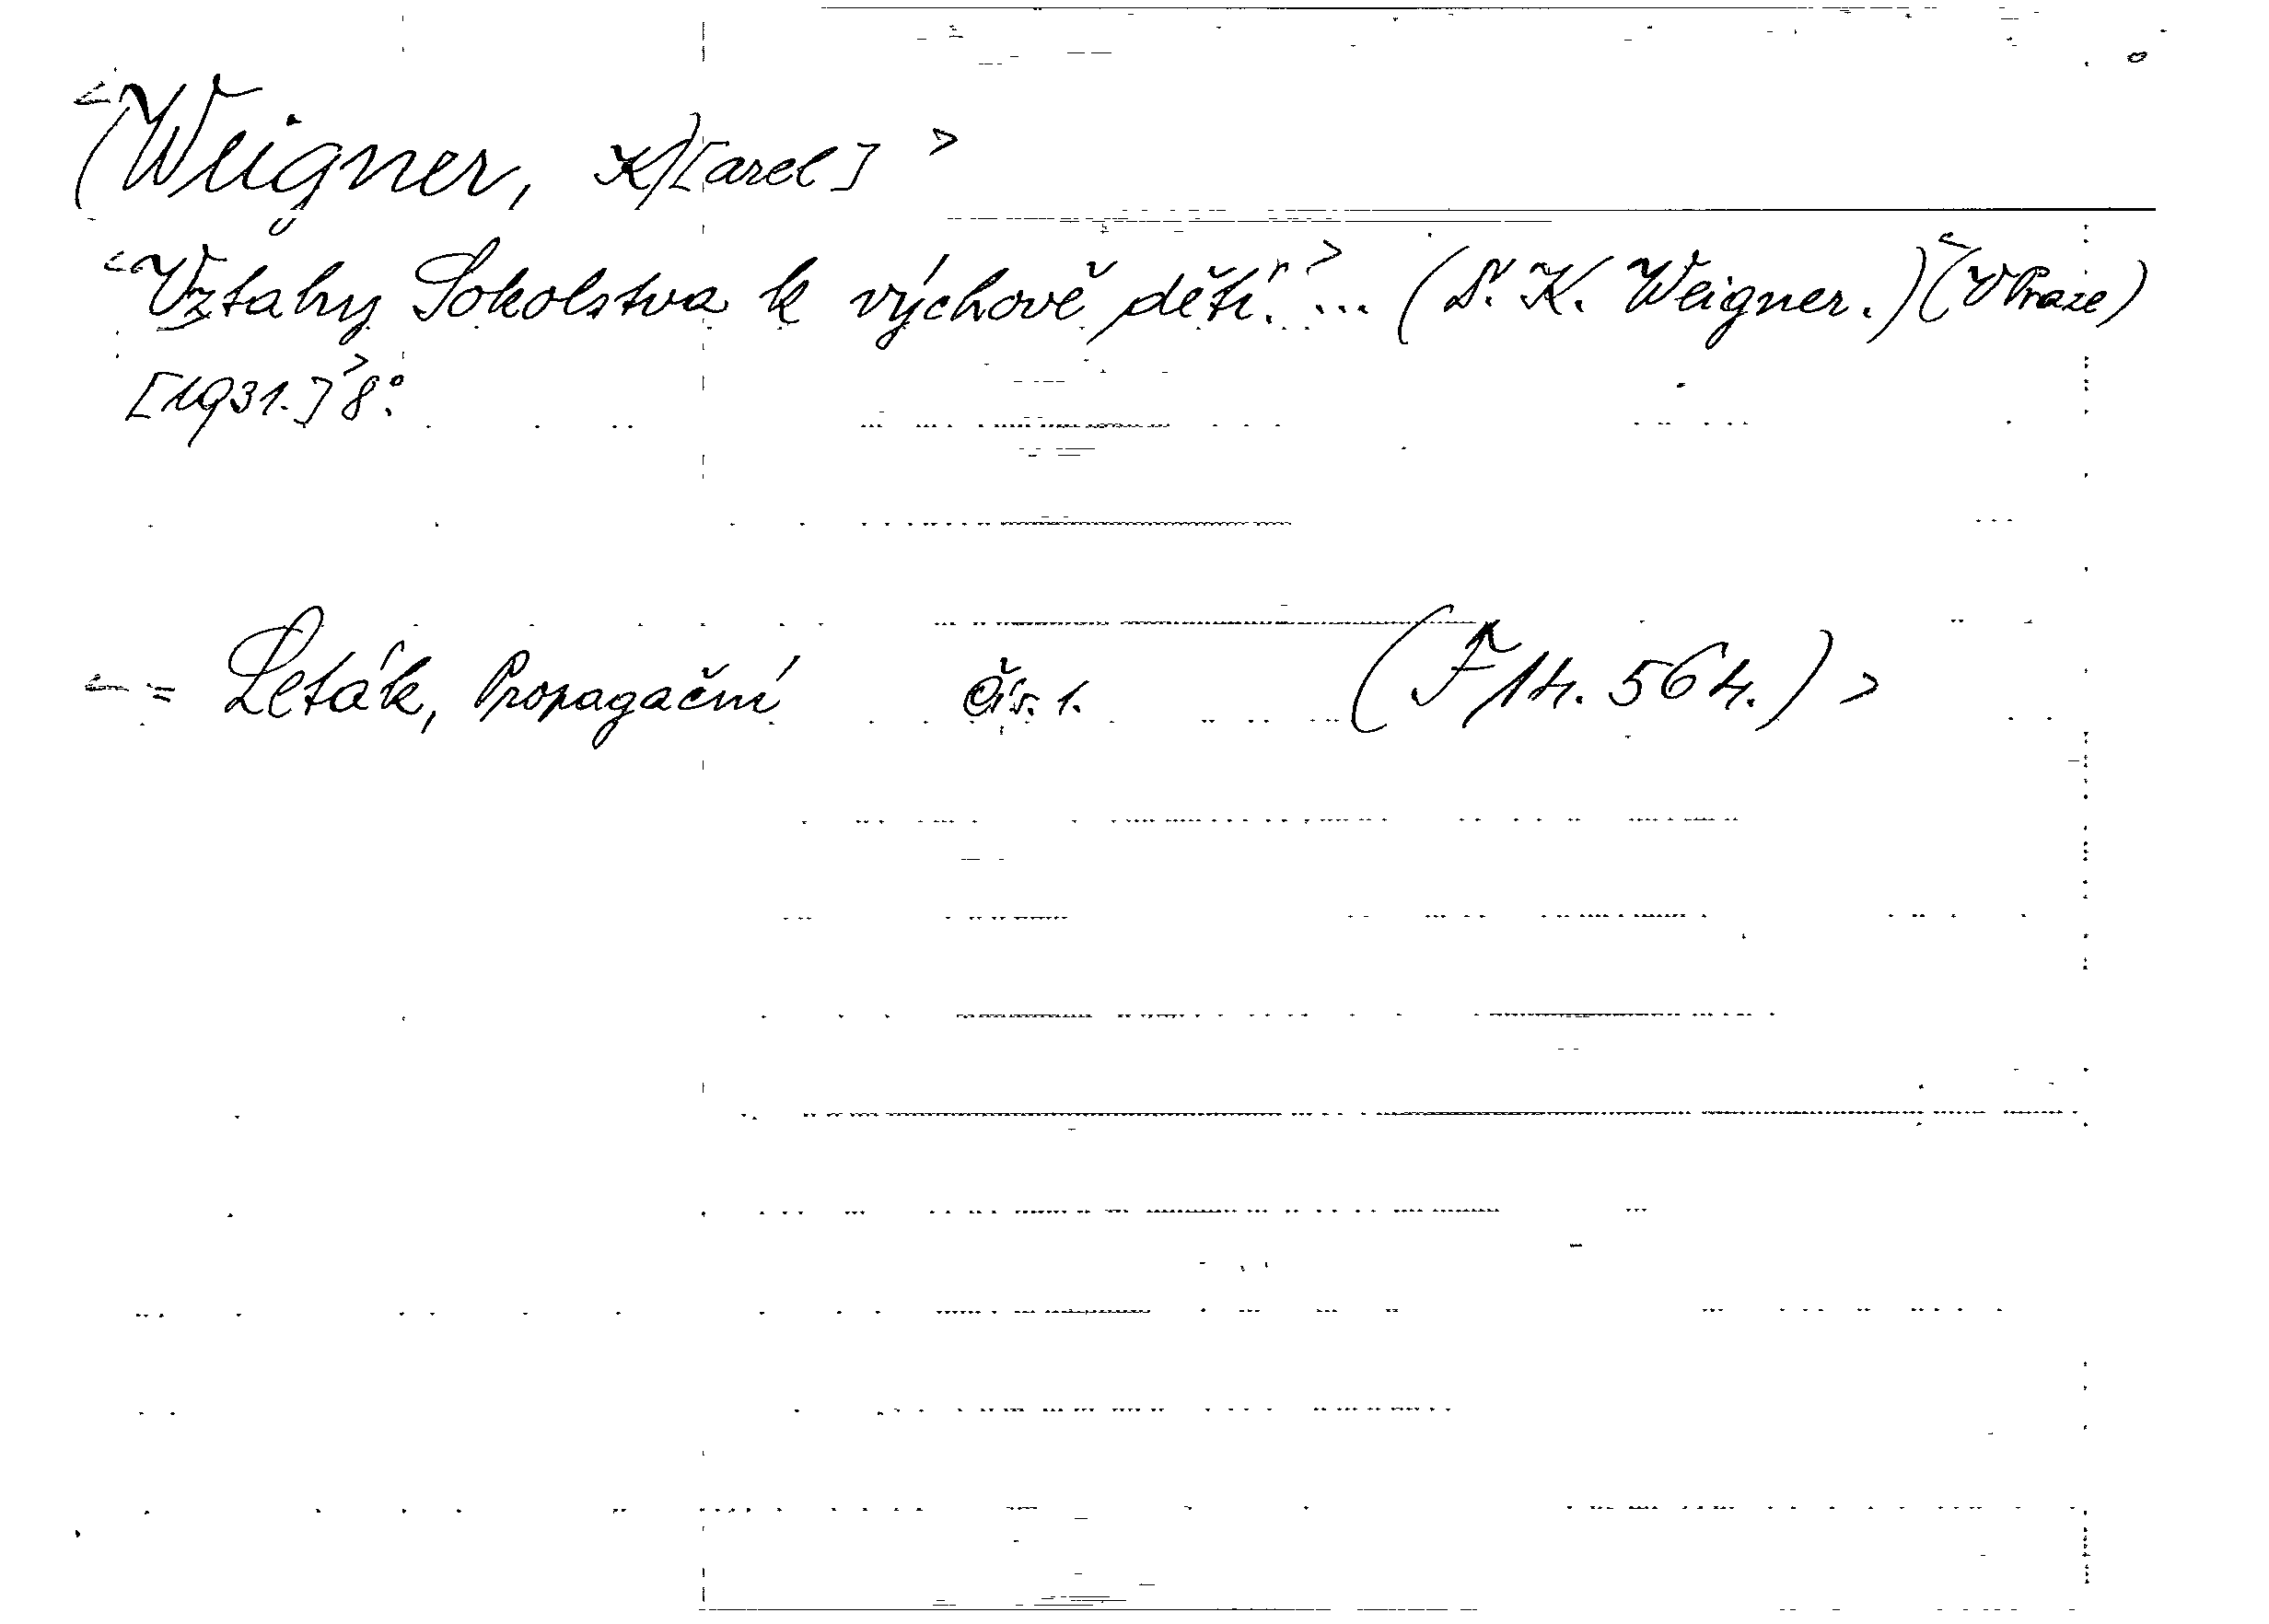 <(Weigner, K)[arel]>
<Vztahy Sokolstva k výchově dětí."> ... (Dr. K. Weigner.) <(V Praze)
[1931.]> 8°.
<- = Leták, Propagační čís. 1. (F 14. 564.)>